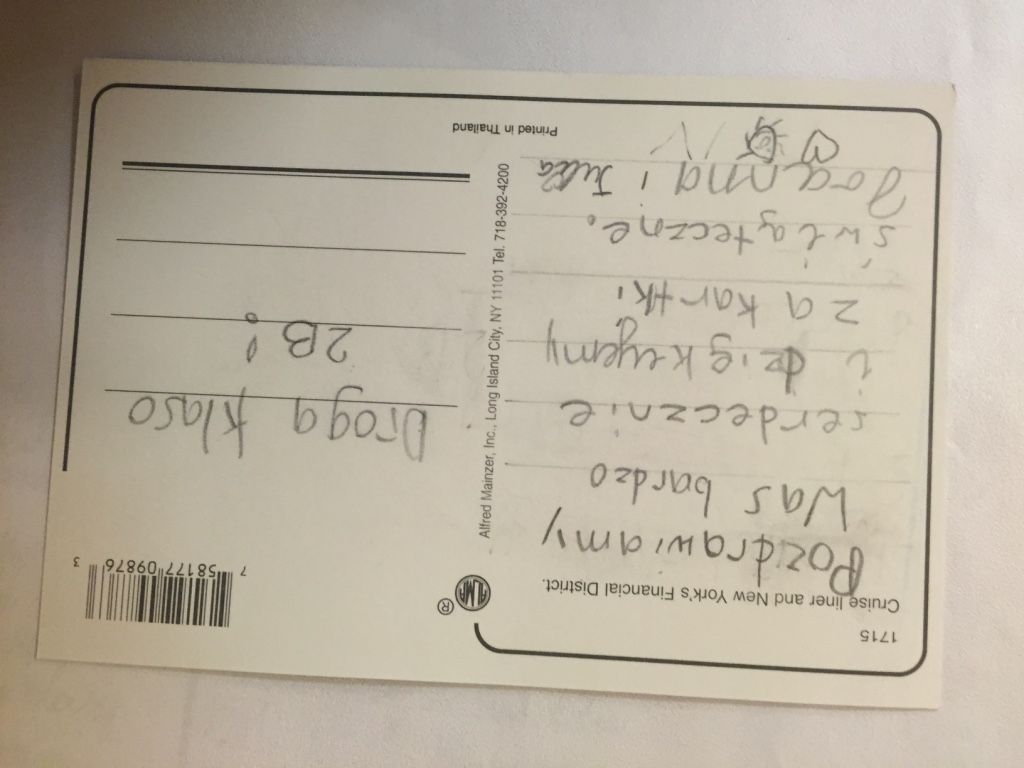 1715
Cruise liner and New York's Financial District.
Pozdrawiamy
Was bardzo
serdecznie
i dziękujemy
za kartki
świąteczne.
Joanna i Julka
ALMA
®
Alfred Mainzer, Inc., Long Island City, NY 11101 Tel. 718-392-4200
Printed in Thailand
7 58177 09876 3
Droga klaso
2B!